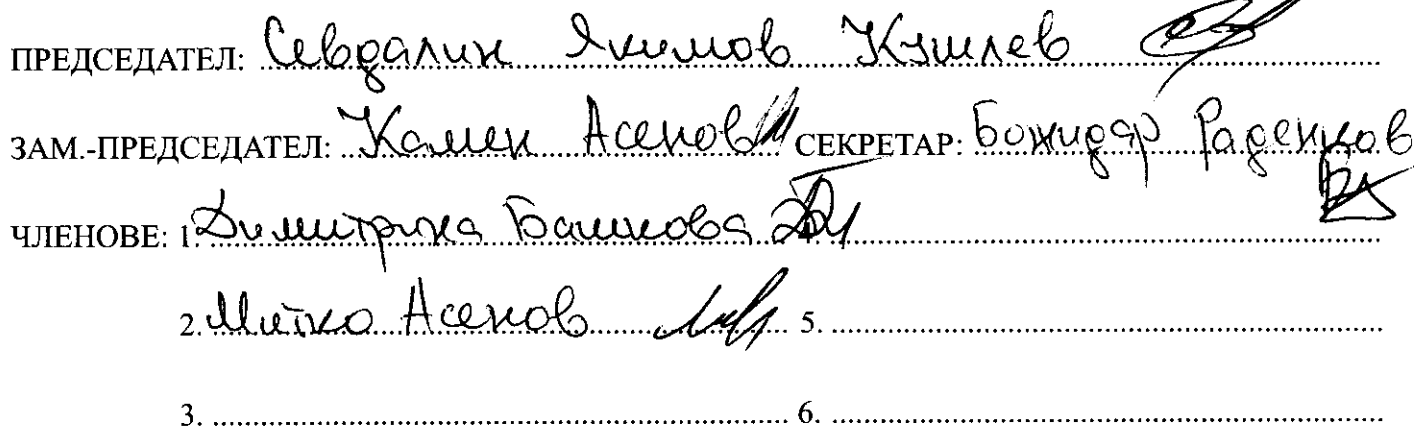 ПРЕДСЕДАТЕЛ: Севдалин Якимов Кушлев
ЗАМ.-ПРЕДСЕДАТЕЛ: Камен Асенов СЕКРЕТАР: Божидар Раденков
ЧЛЕНОВЕ: 1. Димитрина Башкова
2. Митко Асенов 5.
3. 6.